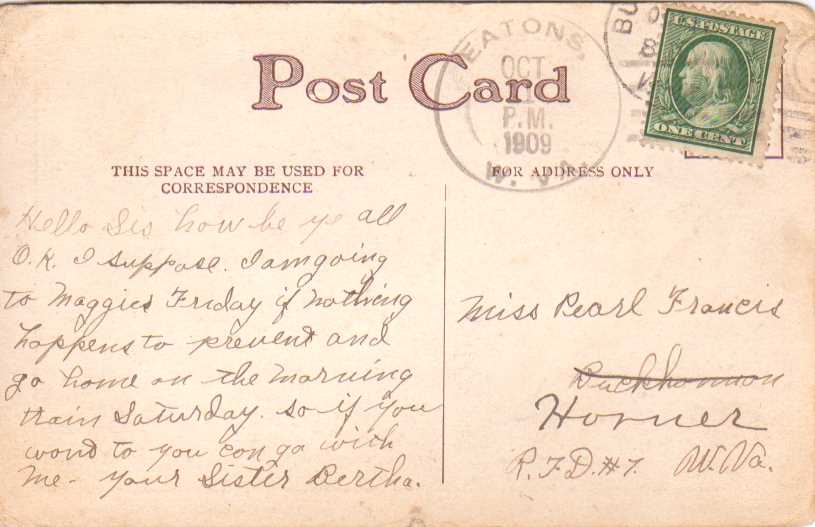 EATONS,
OCT
P.M.
1909
W. VA.
BU
8
U.S. POSTAGE
ONE CENT
Post Card
THIS SPACE MAY BE USED FOR
CORRESPONDENCE
FOR ADDRESS ONLY
Hello Sis how be ye all
O.K. I suppose. I am going
to Maggies Friday if nothing
happens to prevent and
go home on the morning
train Saturday. so if you
wond to you con go with
me - your Sister Bertha.
Miss Pearl Francis
Buckhannon
Horner
R.F.D. #7. W.Va.